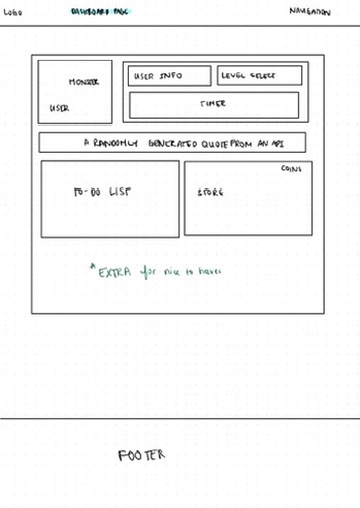 LOGO DASHBOARD PAGE NAVIGATION
MONSTER
USER
USER INFO LEVEL SELECT
TIMER
A RANDOMLY GENERATED QUOTE FROM AN API
TO-DO LIST
COINS
STORE
*EXTRA for nice to haves
FOOTER